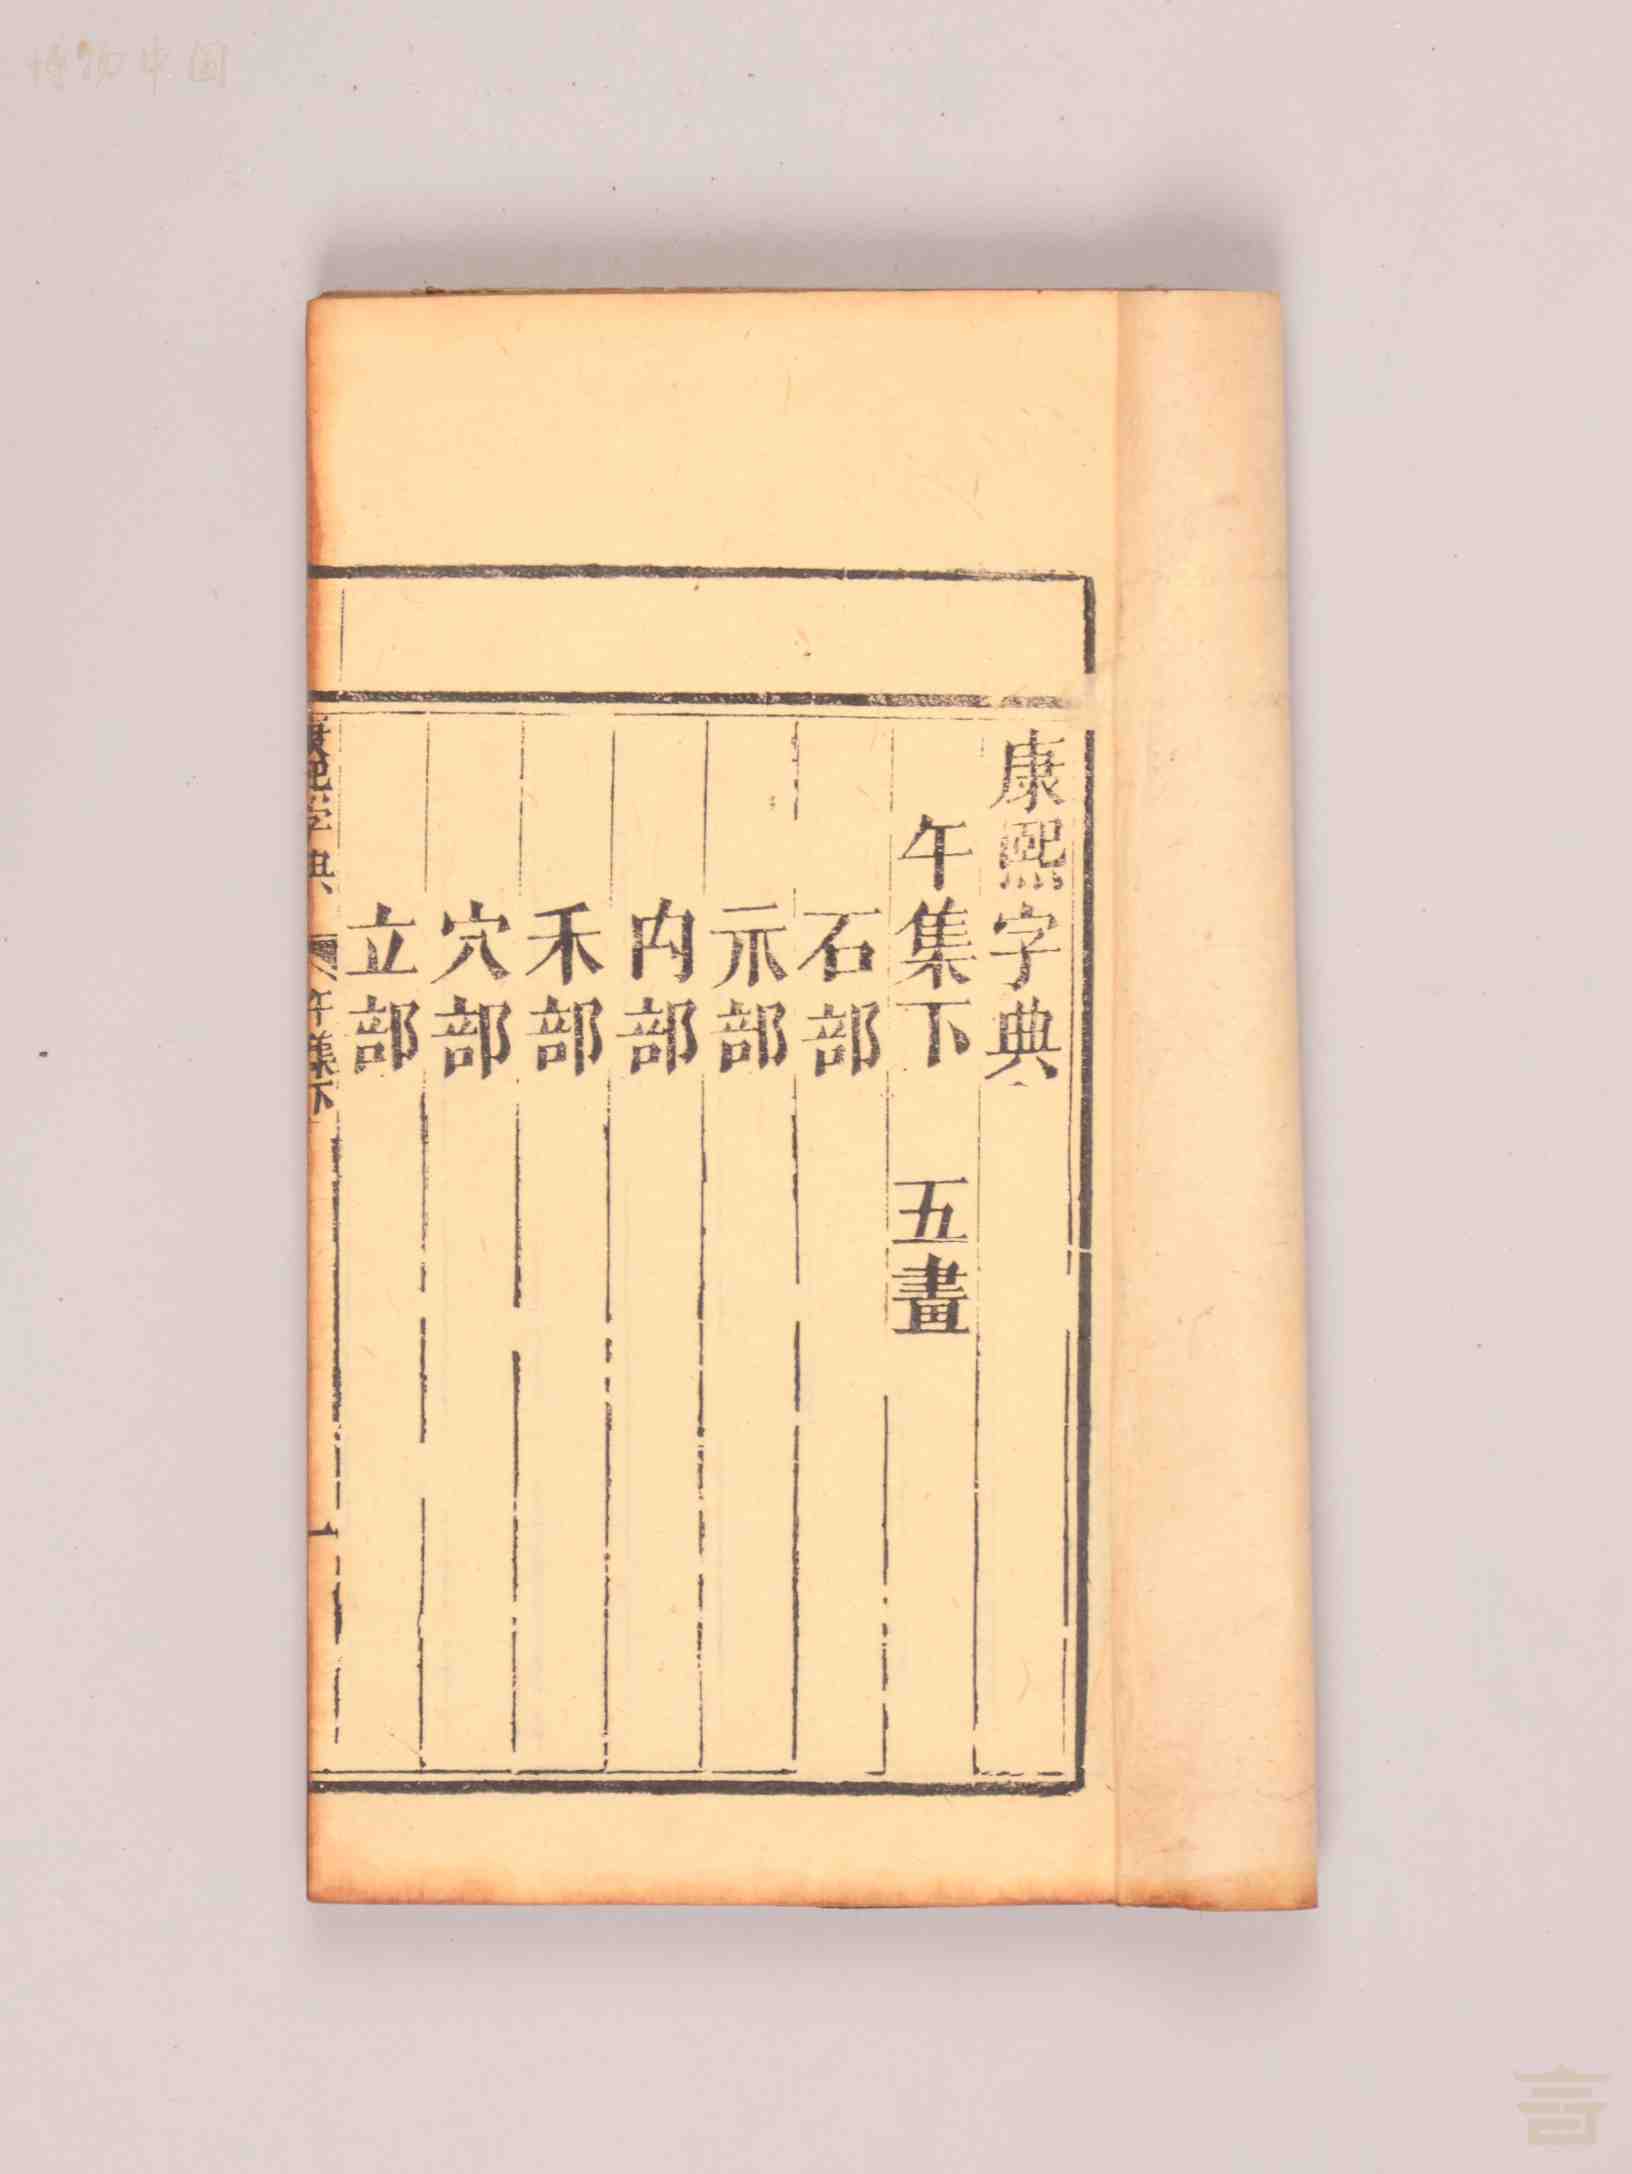 康熙字典
午集下 五畫
石部
示部
禸部
禾部
穴部
立部
康熙字典 午集下 一
博物中国